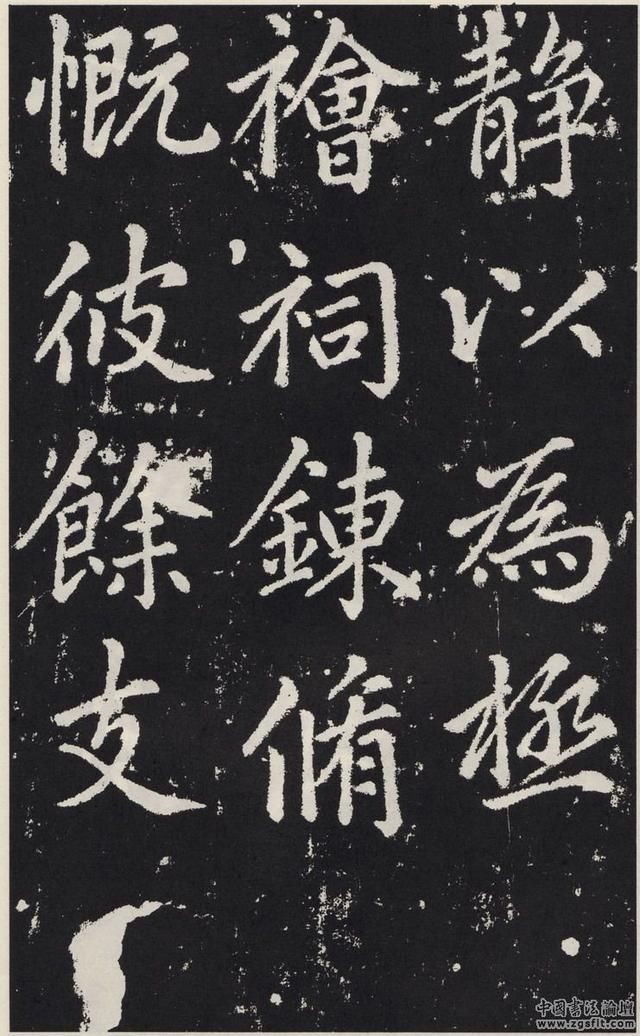 静以為極
禬祠錬脩
慨彼餘支
中国書法論壇
www.zgsflt.com